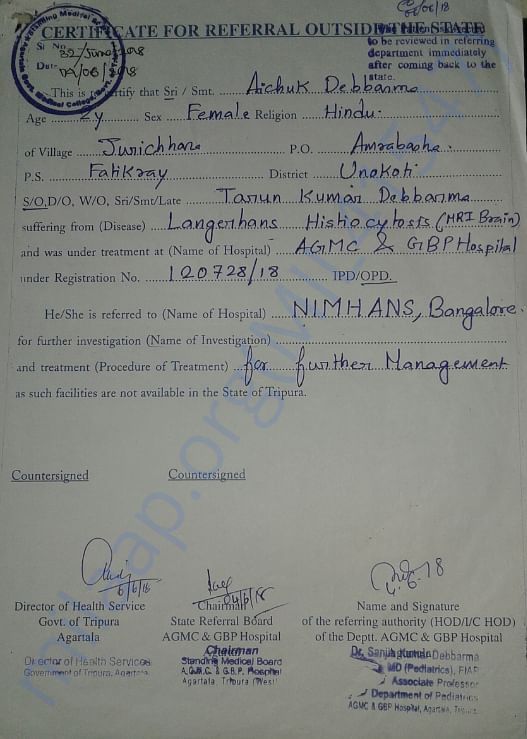 CERTIFICATE FOR REFERRAL OUTSIDE THE STATE
to be reviewed in referring
department immediately
after coming back to the
state.
Sl No. 32/June/2018
Date 04/06/2018
This is certify that Sri / Smt. Aichuk Debbarma
Age 2y Sex Female Religion Hindu.
of Village Jurichhara P.O. Amrabasha.
P.S. Fatikray District Unokoti
S/O,D/O, W/O, Sri/Smt/Late Tarun Kumar Debbarma
suffering from (Disease) Langerhans Histiocytosis (MRI Brain)
and was under treatment at (Name of Hospital) AGMC & GBP Hospital
under Registration No. 120728/18 IPD/OPD.
He/She is referred to (Name of Hospital) NIMHANS, Bangalore.
for further investigation (Name of Investigation)
and treatment (Procedure of Treatment) for further Management
as such facilities are not available in the State of Tripura.
Countersigned Countersigned
6/6/18
04/6/18
4.6.18
Director of Health Service
Govt. of Tripura
Agartala
Chairman
State Referral Board
AGMC & GBP Hospital
Name and Signature
of the referring authority (HOD/I/C HOD)
of the Deptt. AGMC & GBP Hospital
Director of Health Services
Government of Tripura, Agartala
Chairman
Standing Medical Board
A.G.M.C. & G.B.P. Hospital
Agartala, Tripura (West)
Dr. Sanjib Kumar Debbarma
MD (Pediatrics), FIAP
Associate Professor
Department of Pediatrics
AGMC & GBP Hospital, Agartala, Tripura